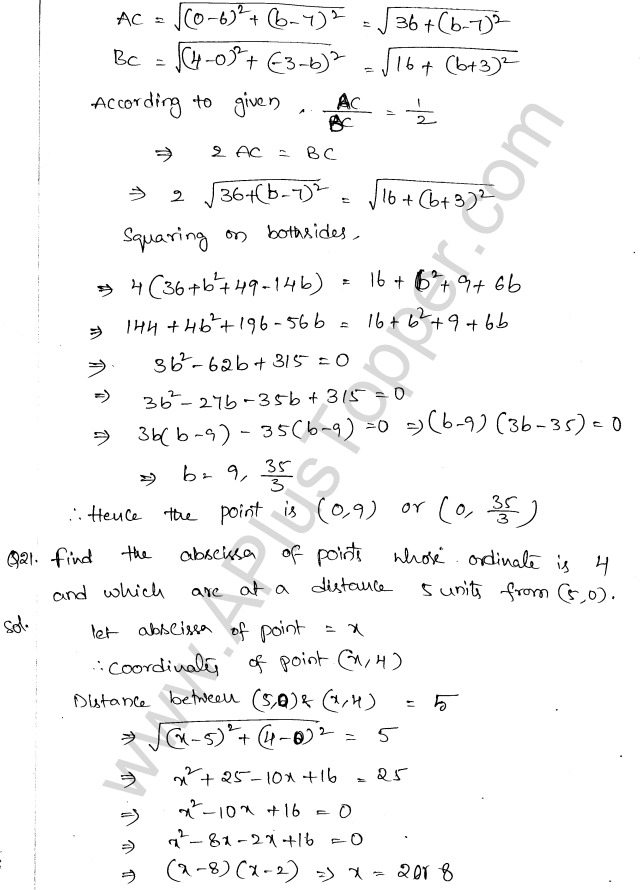 AC = √(0-6)²+(b-7)² = √36+(b-7)²
BC = √(4-0)²+(-3-b)² = √16+(b+3)²
According to given, AC/BC = 1/2
⇒ 2 AC = BC
⇒ 2 √36+(b-7)² = √16+(b+3)²
Squaring on bothsides,
⇒ 4(36+b²+49-14b) = 16+b²+9+6b
⇒ 144+4b²+196-56b = 16+b²+9+6b
⇒ 3b²-62b+315=0
⇒ 3b²-27b-35b+315=0
⇒ 3b(b-9)-35(b-9)=0 ⇒(b-9)(3b-35)=0
⇒ b=9, 35/3
∴ Hence the point is (0,9) or (0, 35/3)
Q21. Find the abscissa of points whose ordinate is 4
and which are at a distance 5 units from (5,0).
Sol. let abscissa of point = x
∴ coordinates of point (x,4)
Distance between (5,0) & (x,4) = 5
⇒ √(x-5)²+(4-0)² = 5
⇒ x²+25-10x+16=25
⇒ x²-10x+16=0
⇒ x²-8x-2x+16=0
⇒ (x-8)(x-2) ⇒ x = 2 or 8
www.APlusTopper.com